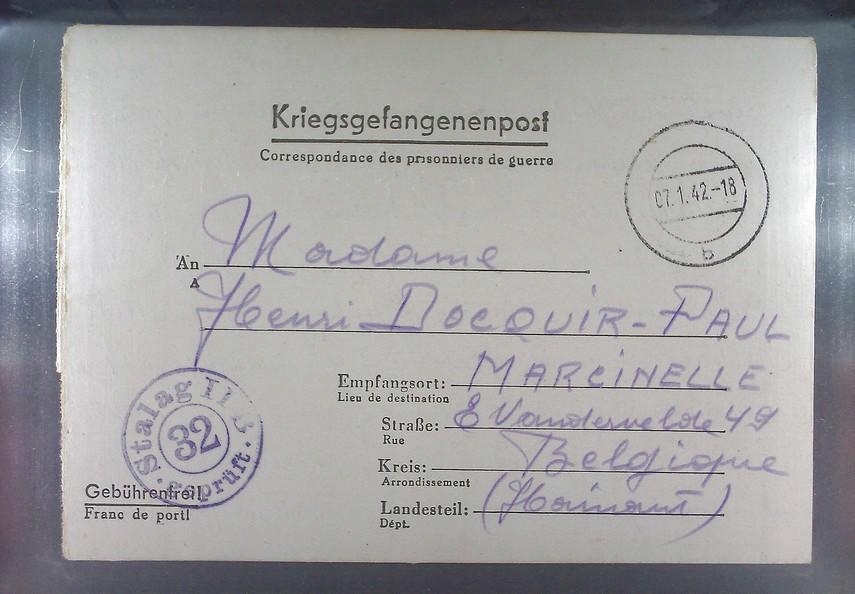 Kriegsgefangenenpost
Correspondance des prisonniers de guerre
07.1.42.-18
b
An Madame
A
Henri DOCQUIR-PAUL
Empfangsort: MARCINELLE
Lieu de destination
Straße: E Vandervelde 49
Rue
Kreis: Belgique
Arrondissement
Landesteil: (Hainaut)
Dépt.
Stalag II B
32
geprüft.
Gebührenfrei!
Franc de port!